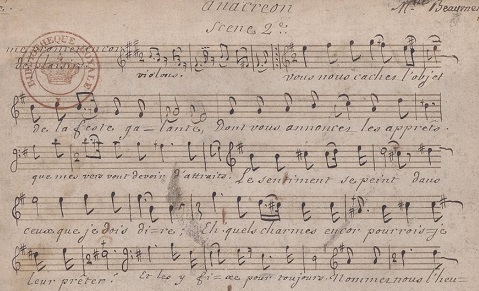 anacreon
Mlle Beaumen
Scene 2e.
BIBLIOTHEQUE ROYALE
violons.
vous nous cachez l'objet
de la feste ga=lante, dont vous annoncez les apprets.
que mes vers vont devoir d'attraits. Le sentiment se peint dans
ceux que je dois di=re; Eh quels charmes encor pourrois=je
leur prêter! Et les y fi=xe pour toujours. Nommez nous l'heu=